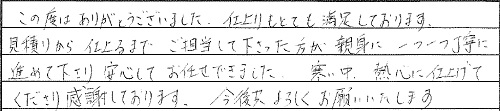 この度はありがとうございました。仕上りもとても満足しております。
見積りから仕上るまでご担当して下さった方が親身に一つ一つ丁寧に
進めて下さり安心してお任せできました。寒い中、熱心に仕上げて
くださり感謝しております。今後共よろしくお願いいたします